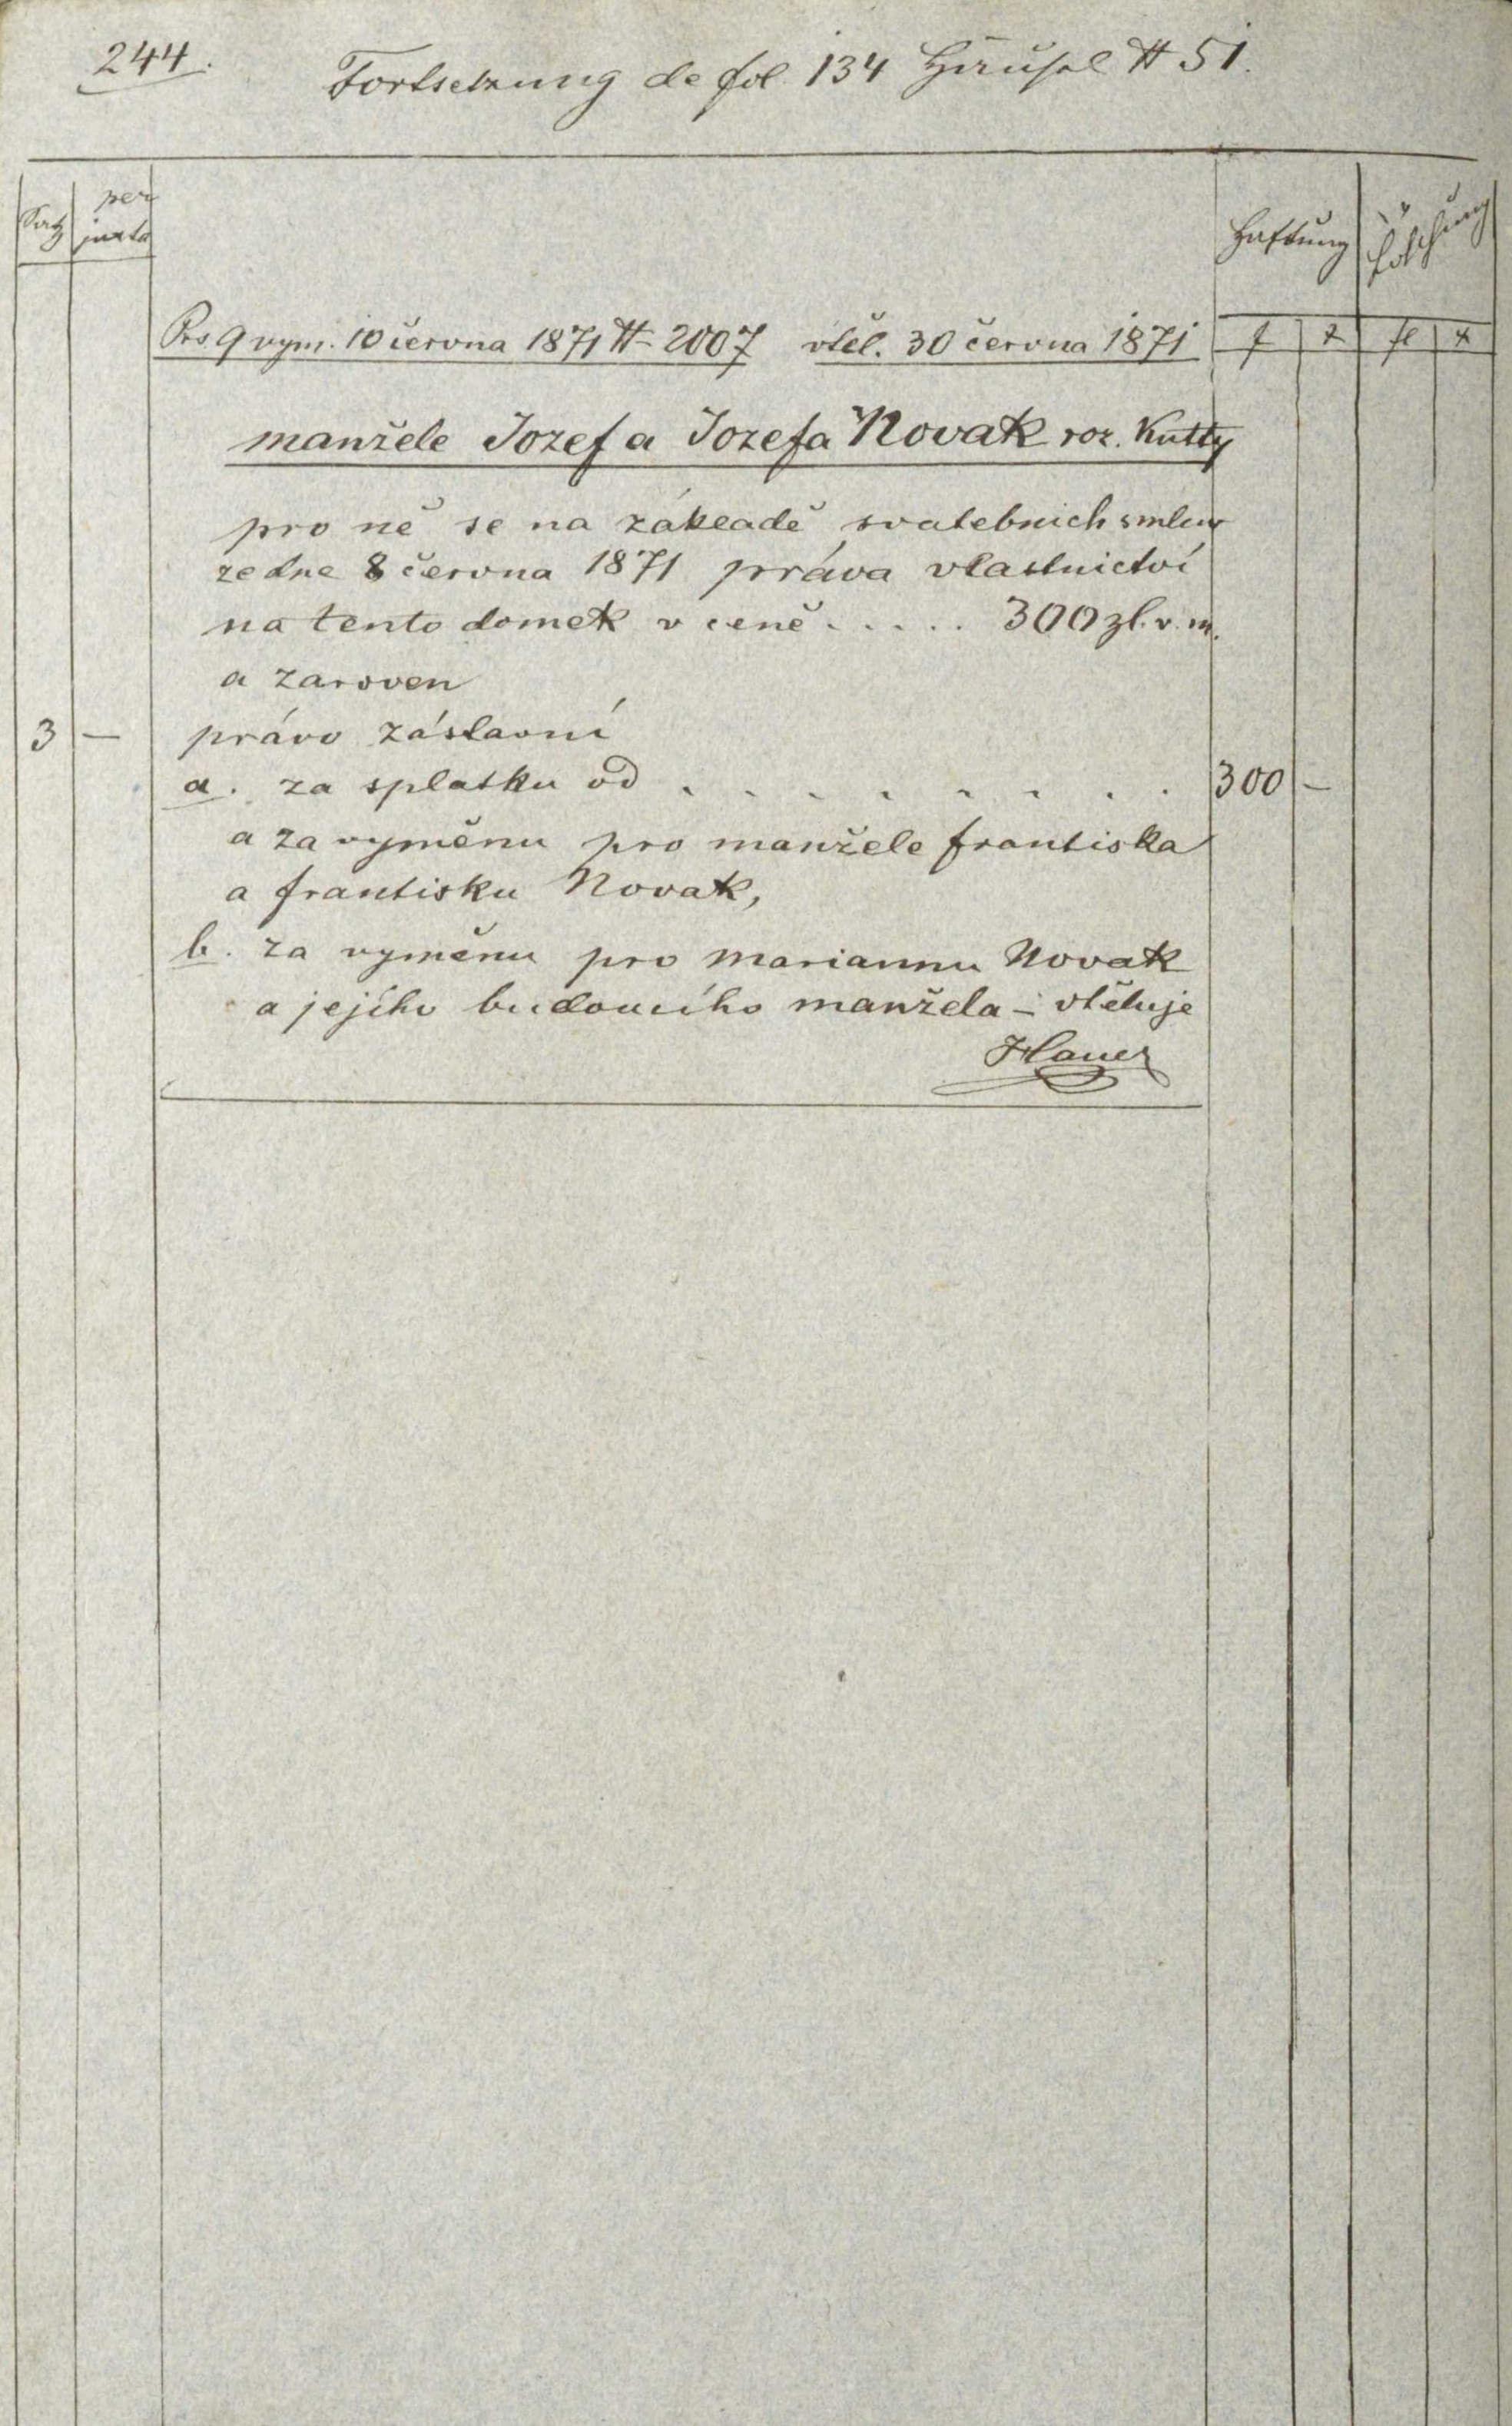 244.
Fortsetzung de fol. 134 Häusel # 51.
Satz
per juxta
Haftung
Löschung
f x fl x
Prs 9 vym. 10 června 1871 # 2007 vtěl. 30 června 1871
manžele Jozef a Jozefa Novak roz. Kutty
pro ně se na zakladě svatebnich smluv
ze dne 8 června 1871 práva vlastnictví
na tento domek v ceně . . . . . 300 zl. r. m.
a zaroven
3 — právo zástavní
a. za splatku od . . . . . . . . 300 —
a za vyměnu pro manžele frantiska
a frantisku Novak,
b. za vyměnu pro mariannu Novak
a jejího budoucího manžela – vtěluje